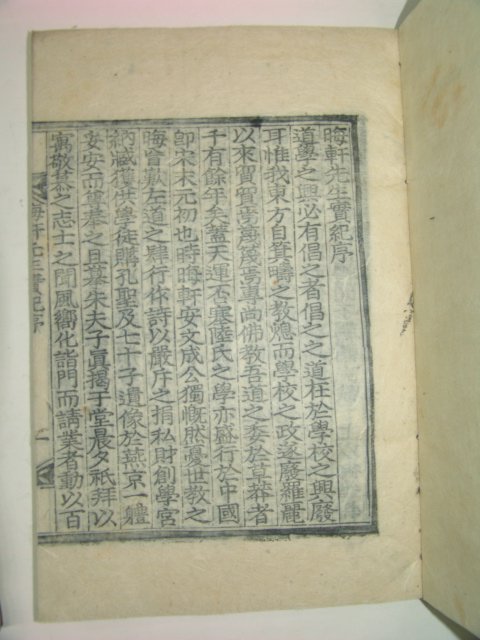 晦軒先生實紀序
道學之興必有倡之者倡之之道在於學校之興廢
耳惟我東方自箕疇之教熄而學校之政遂廢羅麗
以來貿貿焉蔑蔑焉專尚佛教吾道之委於草莽者
千有餘年矣蓋天運否塞陸氏之學亦盛行於中國
即宋末元初也時晦軒安文成公獨慨然憂世教之
晦盲歎左道之肆行作詩以嚴斥之捐私財創學宮
納臧獲供學徒購孔聖及七十子遺像於燕京一軆
妥安而尊奉之且慕朱夫子眞揭于堂晨夕祗拜以
寓敬慕之志士之聞風嚮化詣門而請業者動以百
晦軒先生實紀序